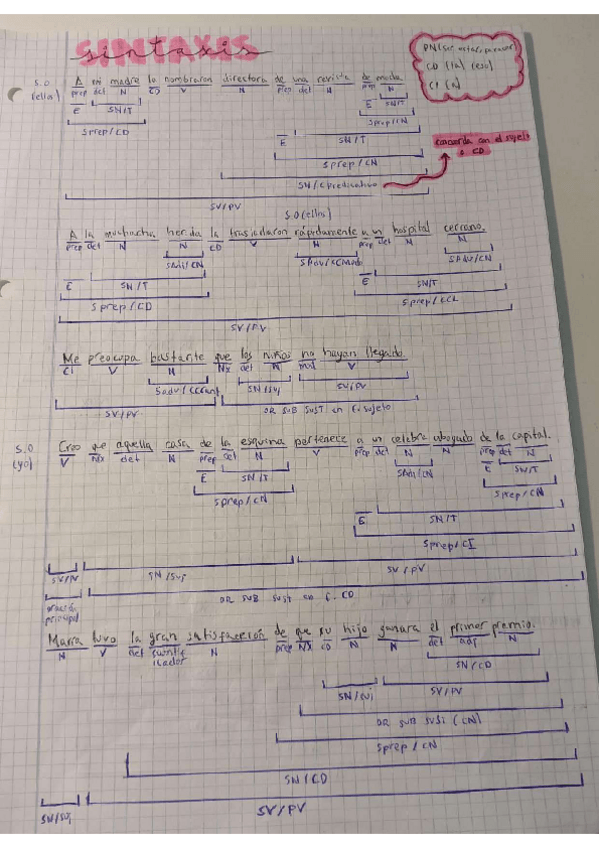 SINTAXIS
PN (ser, estar, parecer)
CD (la) (eso)
CI (le)
S.O
(ella) A mi madre la nombraron directora de una revista de moda.
prep det N CD V N prep det N prep N
E SN/T E SN/T
Sprep/CD Sprep/CN
E SN/T
concuerda con el sujeto
o CD
Sprep/CN
SN/CPredicativo
SV/PV
S.O (ellos)
A la muchacha herida la trasladaron rápidamente a un hospital cercano.
prep det N N CD V N prep det N N
SAdj/CN SAdv/CCModo SAdv/CN
E SN/T E SN/T
Sprep/CD Sprep/CCL
SV/PV
Me preocupa bastante que los niños no hayan llegado.
CI V N NX det N mod V
SAdv/CCcant SN/suj SV/PV
SV/PV OR SUB SUST en f. sujeto
S.O
(yo) Creo que aquella casa de la esquina pertenece a un celebre abogado de la capital.
V NX det N prep det N V prep det N N prep det N
E SN/T SAdj/CN E SN/T
Sprep/CN Sprep/CN
E SN/T
Sprep/CI
SV/PV SN/suj SV/PV
oración
principal OR SUB SUST en f. CD
María tuvo la gran satisfacción de que su hijo ganara el primer premio.
N V det cuantificador N prep NX CD N N det adj N
SN/CD
SN/suj SV/PV
OR SUB SUST (CN)
Sprep/CN
SN/CD
SN/suj SV/PV